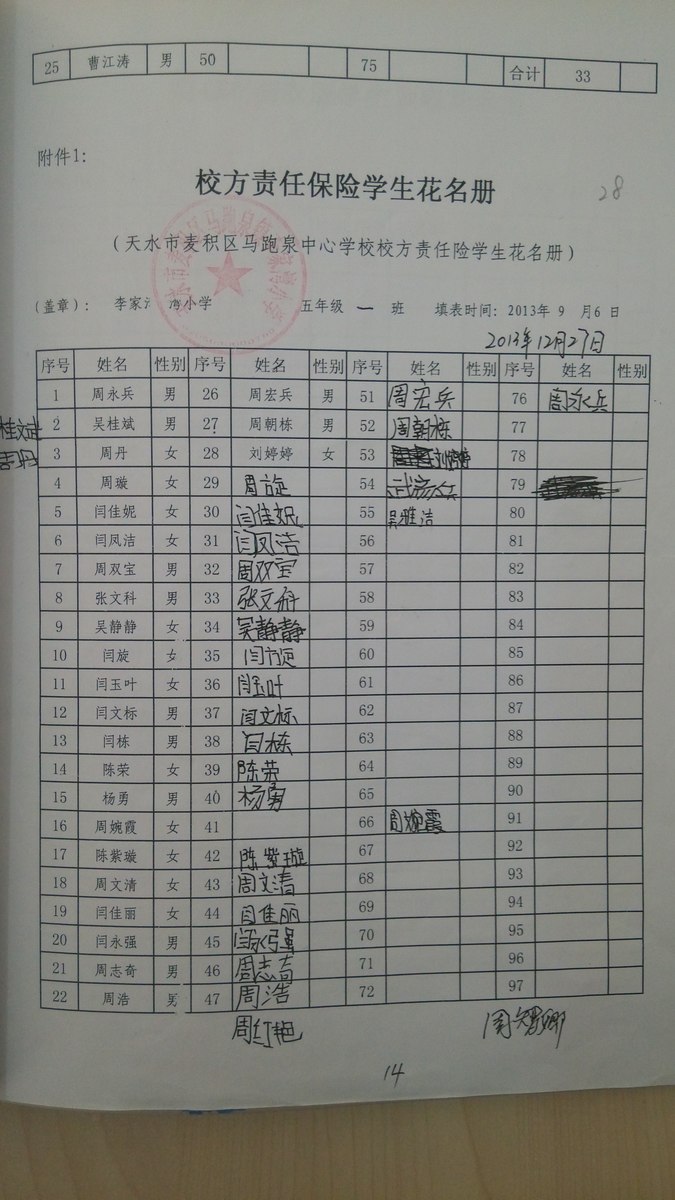 25 曹江涛 男 50 75 合计 33
附件1:
校方责任保险学生花名册
28
(天水市麦积区马跑泉中心学校校方责任险学生花名册)
(盖章): 李家 湾小学 五年级 一 班 填表时间: 2013年 9 月6 日
2013年12月27日
序号 姓名 性别 序号 姓名 性别 序号 姓名 性别 序号 姓名 性别
1 周永兵 男 26 周宏兵 男 51 周宏兵 76 周永兵
2 吴桂斌 男 27 周朝栋 男 52 周朝栋 77
3 周丹 女 28 刘婷婷 女 53 刘婷婷 78
周丹
4 周璇 女 29 周旋 54 79
5 闫佳妮 女 30 闫佳妮 55 吴雅洁 80
6 闫凤洁 女 31 闫凤洁 56 81
7 周双宝 男 32 周双宝 57 82
8 张文科 男 33 张文科 58 83
9 吴静静 女 34 吴静静 59 84
10 闫旋 女 35 闫旋 60 85
11 闫玉叶 女 36 闫玉叶 61 86
12 闫文标 男 37 闫文标 62 87
13 闫栋 男 38 闫栋 63 88
14 陈荣 女 39 陈荣 64 89
15 杨勇 男 40 杨勇 65 90
16 周婉霞 女 41 66 周婉霞 91
17 陈紫璇 女 42 陈紫璇 67 92
18 周文清 女 43 周文清 68 93
19 闫佳丽 女 44 闫佳丽 69 94
20 闫永强 男 45 闫永强 70 95
21 周志奇 男 46 周志奇 71 96
22 周浩 男 47 周浩 72 97
周红艳
14